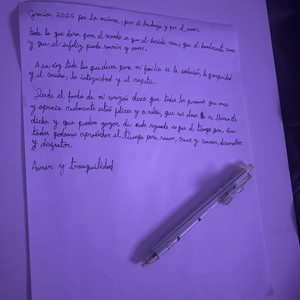 Gracias 2025 por la música, por el trabajo y por el amor.
Todo lo que deseo para el mundo es que el herido sane, que el hambriento coma
y que el infeliz pueda sonreír y amar.
A su vez todo lo que deseo para mi familia es la salud, la prosperidad
y el cariño, la integridad y el respeto.
Desde el fondo de mi corazón deseo que todas las personas que amo
y aprecio realmente estén felices y a salvo, que su alma se llene de
dicha y que puedan gozar de cada segundo ya que el tiempo por
todos podamos aprovechar el tiempo para amar, crear y sanar, desarrollar
y disfrutar.
Amor y tranquilidad